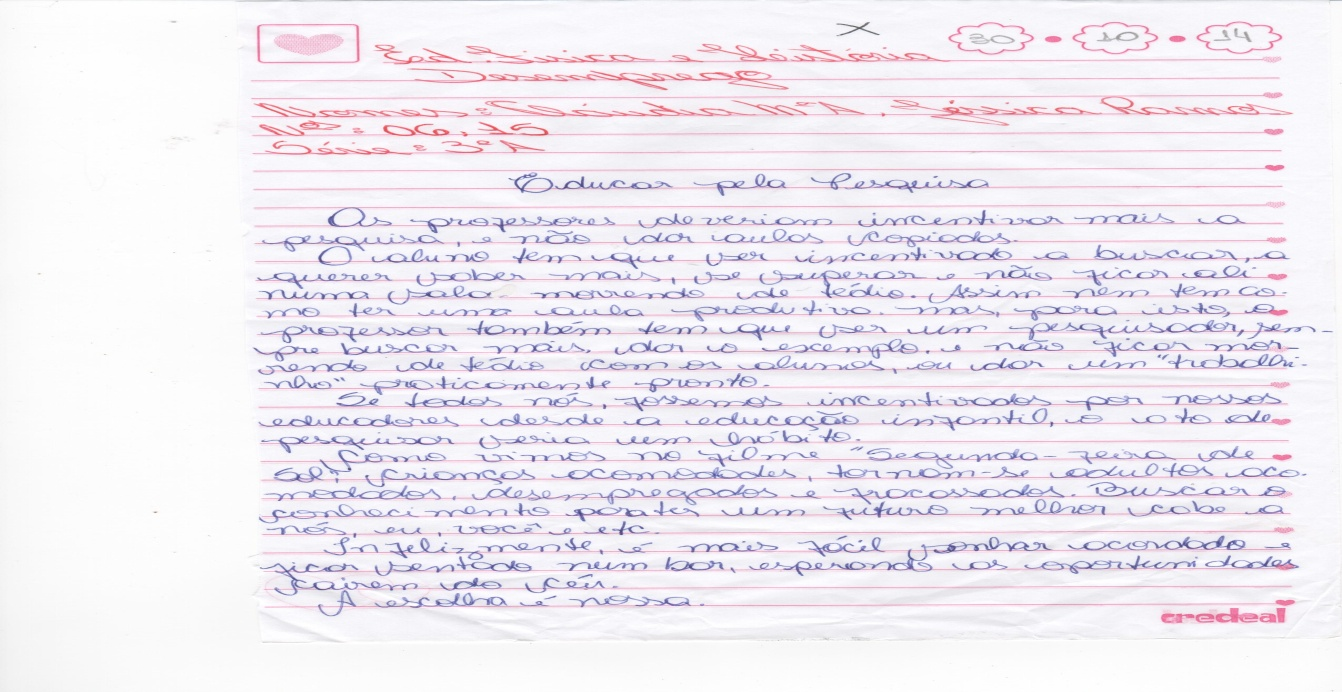 X 30 10 14
Ed. Física e História
Desemprego
Nomes: Cláudia Mª A, Géssica Ramos
Nºs: 06, 15
Série: 3ª A
Educar pela Pesquisa
Os professores deveriam incentivar mais a
pesquisa, e não dar aulas copiadas.
O aluno tem que ser incentivado a buscar, a
querer saber mais, se superar e não ficar ali
numa sala morrendo de tédio. Assim nem tem co-
mo ter uma aula produtiva. mas, para isto, o
professor também tem que ser um pesquisador, sem-
pre buscar mais, dar o exemplo, e não ficar mor-
rendo de tédio com os alunos, ou dar um "trabalhi-
nho" praticamente pronto.
Se todos nós, fossemos incentivados por nossos
educadores desde a educação infantil, o ato de
pesquisar seria um hábito.
Como vimos no filme "Segunda-feira de
Sol", crianças acomodadas, tornam-se adultos aco-
modados, desempregados e fracassados. Buscar o
conhecimento para ter um futuro melhor cabe a
nós, eu, você e etc.
Infelizmente, é mais fácil sonhar acordado e
ficar sentado num bar, esperando as oportunidades
cairem do céu.
A escolha é nossa.
credeal